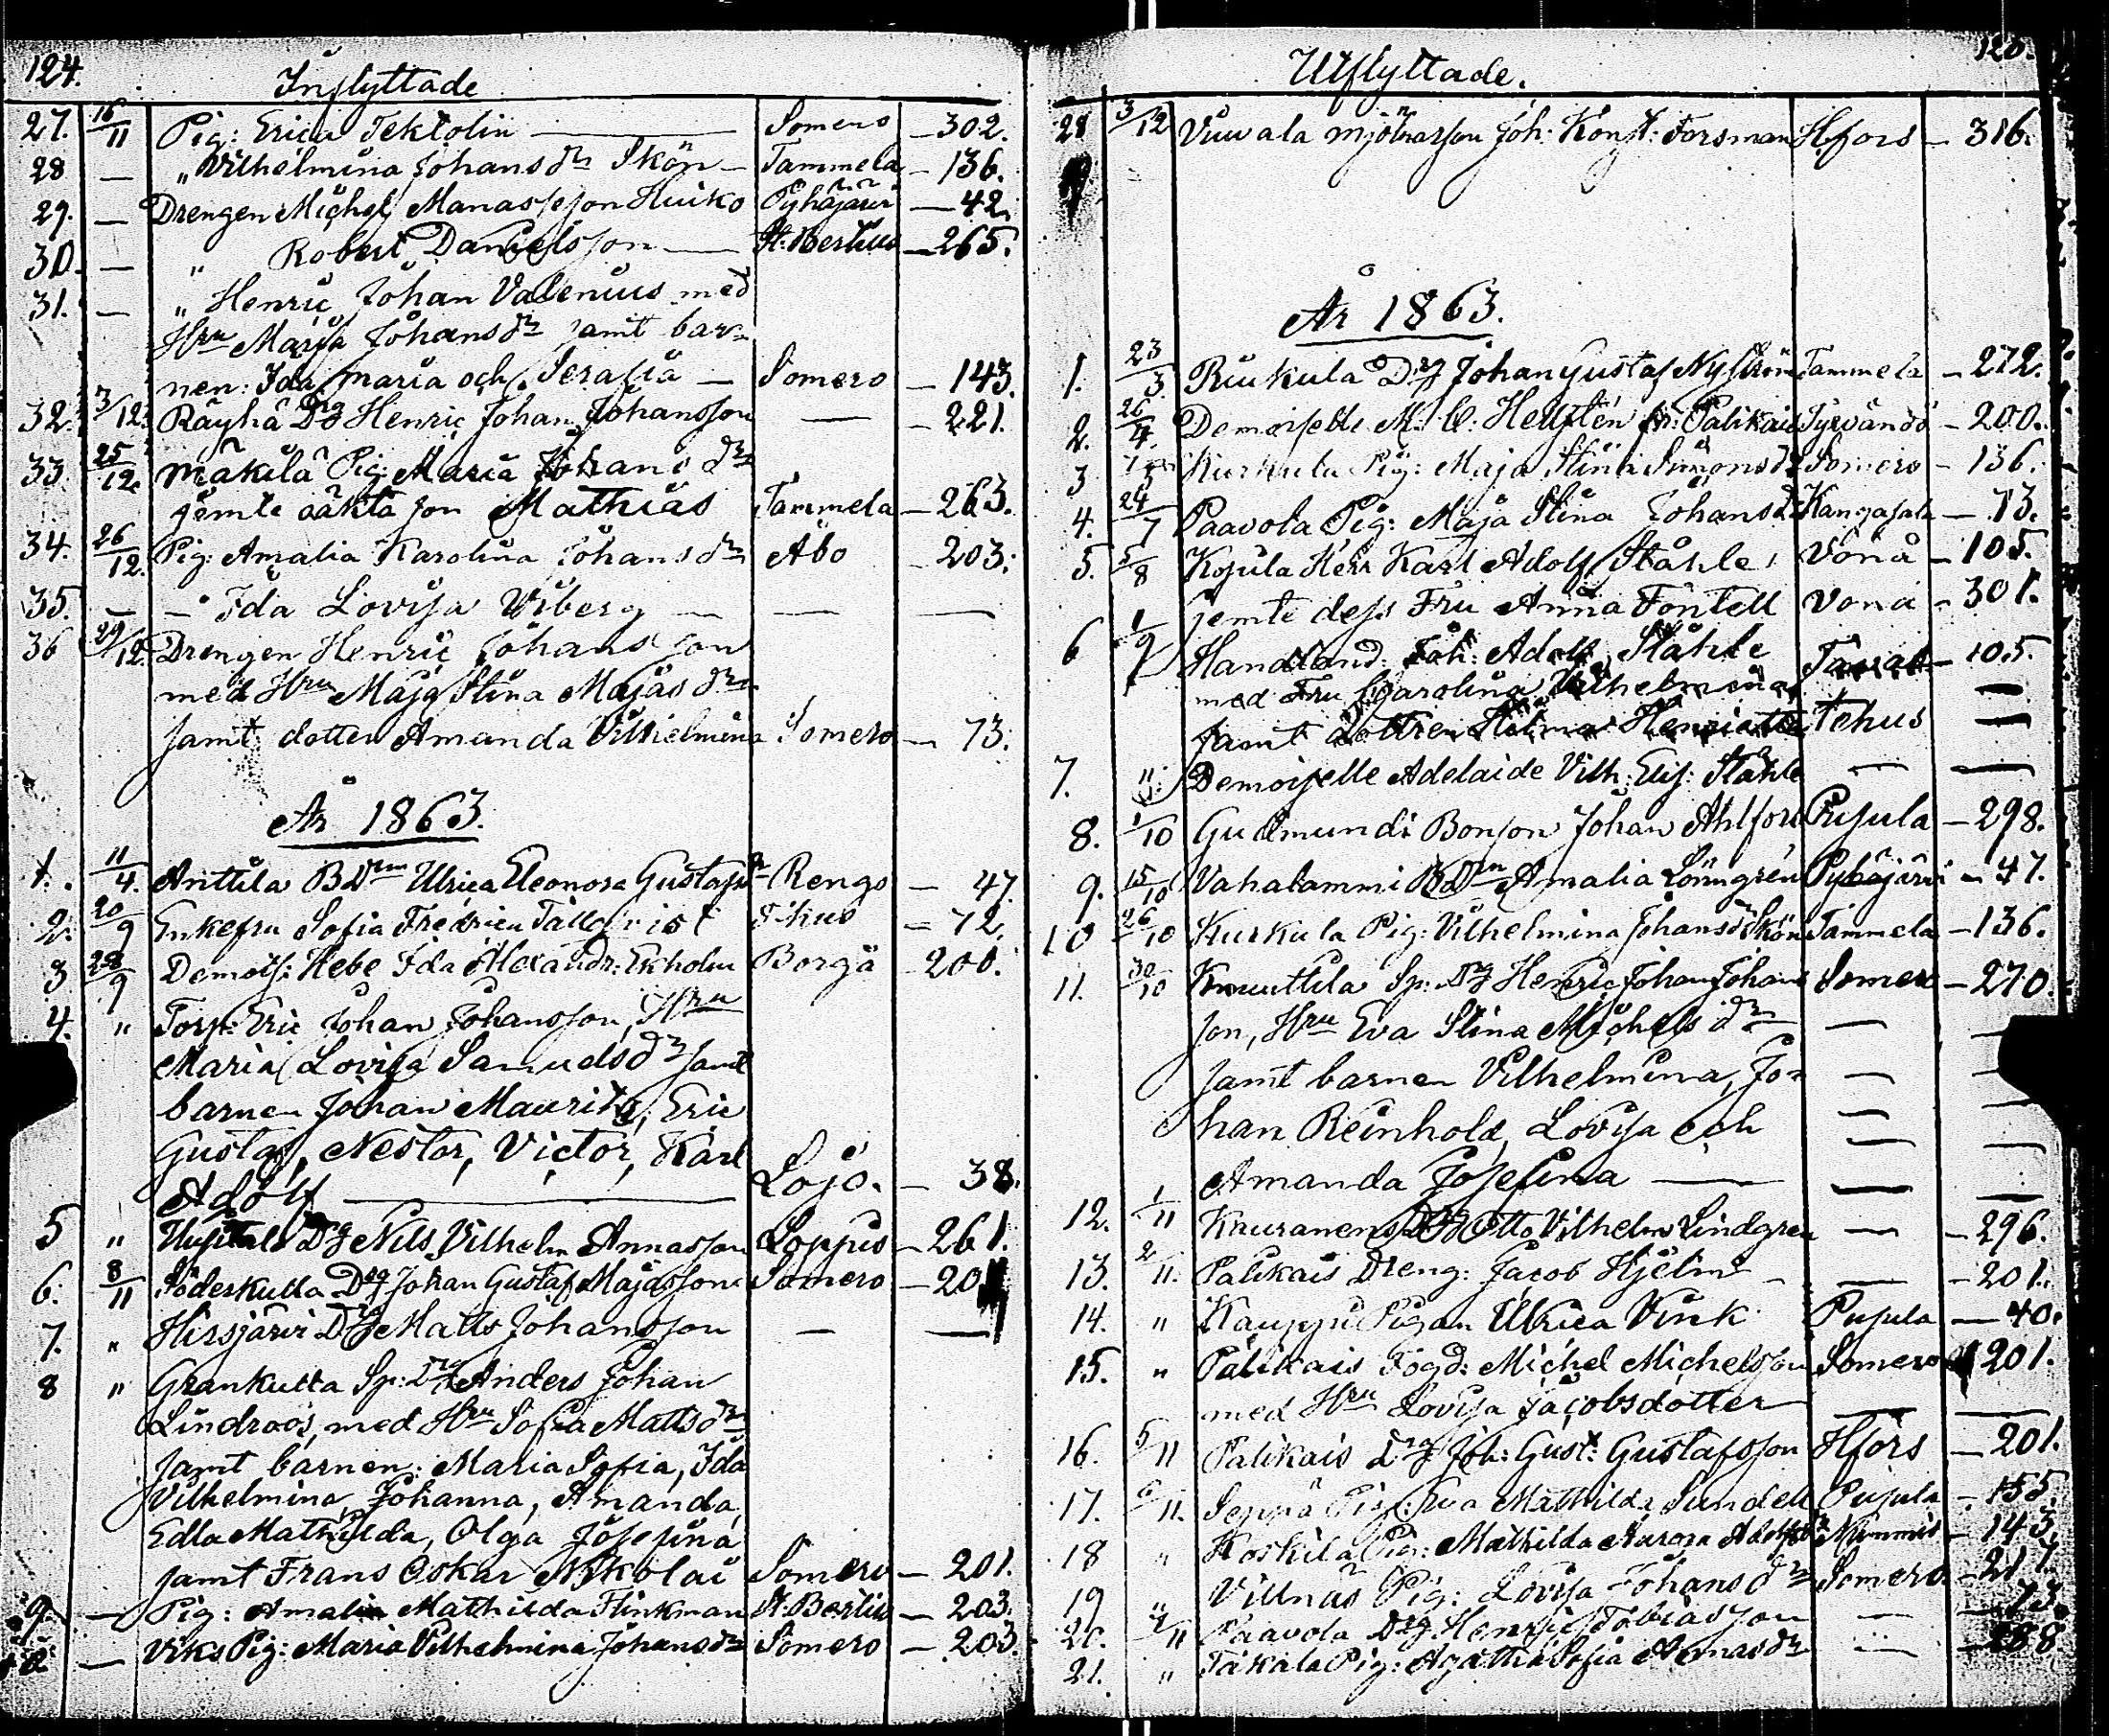 124.
Inflyttade
27. 16/11 Pig: Erica Tektolin — Somero — 302.
28 — „ Vilhelmina Johansdr Skön — Tammela — 136.
29. — Drengen Michel Manasseson Huiko Pyhäjärvi — 42.
30. — „ Robert Danielsson — St. Bertils — 265.
31. — „ Henric Johan Valenius med
Hru Maja Johansdr samt bar-
nen: Ida Maria och Serafia — Somero — 143.
32. 3/12. Räyhä Drg Henric Johan Johansson — — 221.
33 25/12. Mäkilä Pig: Maria Johansdr
jemte oäkta son Mathias Tammela — 263.
34. 26/12. Pig: Amalia Karolina Johansdr Åbo — 203.
35. — — Ida Lovisa Viberg — — —
36 29/12. Drengen Henric Johansson
med Hru Maja Stina Majasdr
samt dotter Amanda Vilhelmina Somero — 73.
År 1863.
1. 11/4. Anttila BDrn Ulrica Eleonora Gustafsdr Rengo — 47
2. 20/9 Enkefru Sofia Fredrica Tallqvist T:hus — 72.
3 28/9 Demois: Hebe Ida Alexandr: Ekholm Borgå — 200.
4. „ Torp: Eric Johan Johansson, Hru
Maria Lovisa Samuelsdr samt
barnen Johan Mauritz, Eric
Gustaf, Nestor, Victor, Karl
Adolf — Lojo. — 38.
5 „ Drg Nils Vilhelm Annasson Loppis — 261.
6. 8/11 Söderkulla Drg Johan Gustaf Majasson Somero — 201
7. „ Hirsjärvi Drg Matts Johansson — —
8 „ Grankulla Sp: Drg Anders Johan
Lindroos, med Hru Sofia Mattsdr
samt barnen: Maria Sofia, Ida
Vilhelmina, Johanna, Amanda,
Edla Mathilda, Olga Josefina
samt Frans Oskar Nikolai Somero — 201.
9. — Pig: Amalia Mathilda Flinkman St. Bertils — 203.
— Viks Pig: Maria Vilhelmina Johansdr Somero — 203.
125.
Utflyttade.
28 3/12 Vuuala mjölnarson Joh: Konst: Forsman Hfors — 316.
År 1863.
1. 23/3. Riukula Drg Johan Gustaf Nyström Tammela — 272.
2. 26/4. Demoiselle M: C: Hellstén fr: Palikais Tyrvändö — 200.
3 Kurkula Pig: Maja Stina Simonsdr Somero — 136.
4. 24/7 Paavola Pig: Maja Stina Johansdr Kangasala — 73.
5. 5/8 Kojula Herr Karl Adolf Ståhle, Vånå — 105.
jemte dess Fru Anna Fontell Vånå — 301.
6 1/9 Handland: Joh: Adolf Ståhle Tavast — 105.
med Fru Carolina Vilhelmina —
samt dottren Hilma Henriette tehus —
7. „ Demoiselle Adelaide Vilh: Elis: Ståhle — —
8. 1/10 Gudmundi Bonson Johan Ahlfors Pusula — 298.
9. 15/10 Vahalammi BDrn Amalia Lönngren Pyhäjärvi — 47.
10 26/10 Kurkula Pig: Vilhelmina Johansdr Skön Tammela — 136.
11. 30/10 Knuuttila Sp: Drg Henric Johan Johans Somero — 270.
son, Hru Eva Stina Michelsdr — —
samt barnen Vilhelmina, Jo- — —
han Reinhold, Lovisa och — —
Amanda Josefina — — —
12. 1/11 Kauranen Drg Otto Vilhelm Lindgren — — 296.
13. 2/11. Palikais Dreng: Jacob Hjelm — — 201.
14. „ Kauppi Pigan Ulrica Vink Pusula — 40.
15. „ Palikais Fogd: Michel Michelsson Somero 201.
med Hru Lovisa Jacobsdotter — —
16. 5/11 Palikais Drg Joh: Gust: Gustafsson Hfors — 201.
17. 6/11. Seppä Pig: Eva Mathilda Sundell Pusula — 155.
18 „ Koskila Pig: Mathilda Aurora Adolfsdr Nummis — 143.
19 „ Villnäs Pig: Lovisa Johansdr Somero — 217.
20. Paavola Drg Henric Tobiasson — — 73.
21. „ Takala Pig: Agatha Sofia Annasdr — — 288.